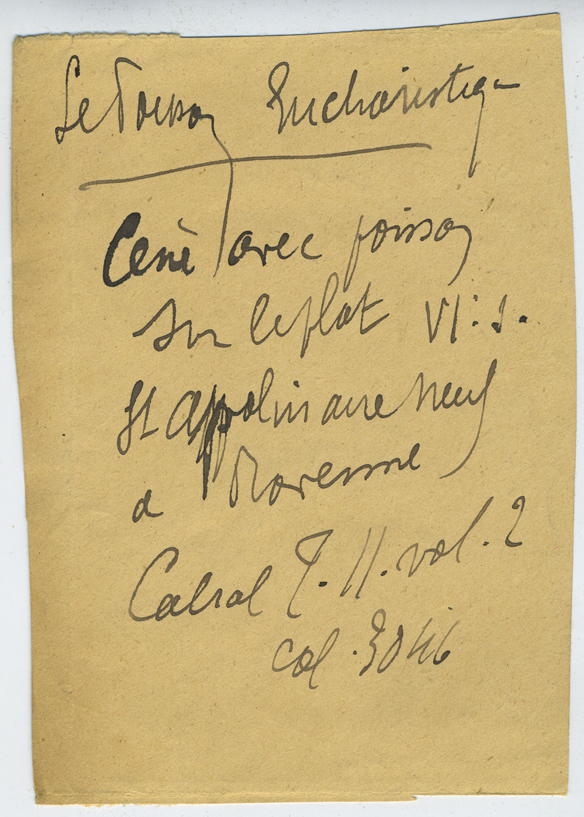 Le Poisson Eucharistique
Cène avec poisson
sur le plat VI: s.
St Appolinaire Neuf
a Ravenne
Cabrol T. II. vol. 2
col. 3046